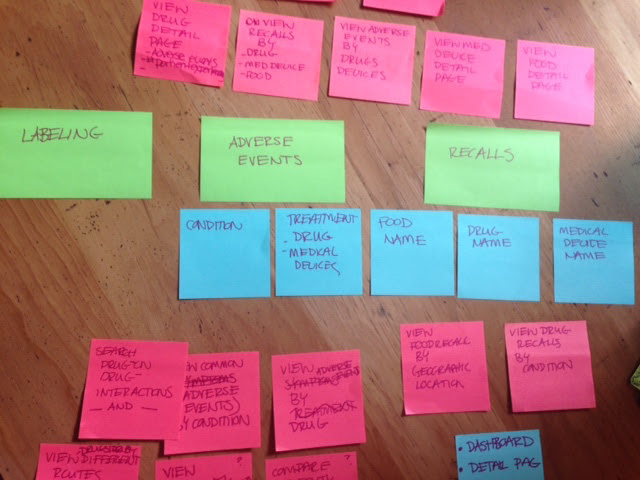 VIEW
DRUG
DETAIL
PAGE
- ADVERSE EVENTS
VIEW
RECALLS
BY
- DRUG
- MED DEVICE
- FOOD
VIEW ADVERSE
EVENTS
BY
DRUGS
DEVICES
VIEW MED
DEVICE
DETAIL
PAGE
VIEW
FOOD
DETAIL
PAGE
LABELING
ADVERSE
EVENTS
RECALLS
CONDITION
TREATMENT
- DRUG
- MEDICAL
DEVICES
FOOD
NAME
DRUG
NAME
MEDICAL
DEVICE
NAME
SEARCH
DRUG ON
DRUG -
INTERACTIONS
— AND —
VIEW COMMON
SYMPTOMS
ADVERSE
EVENTS)
BY CONDITION
VIEW ADVERSE
BY
TREATMENT
DRUG
VIEW
FOOD RECALL
BY
GEOGRAPHIC
LOCATION
VIEW DRUG
RECALLS
BY
CONDITION
VIEW DIFFERENT
ROUTES
?
VIEW
?
COMPARE
• DASHBOARD
• DETAIL PAG